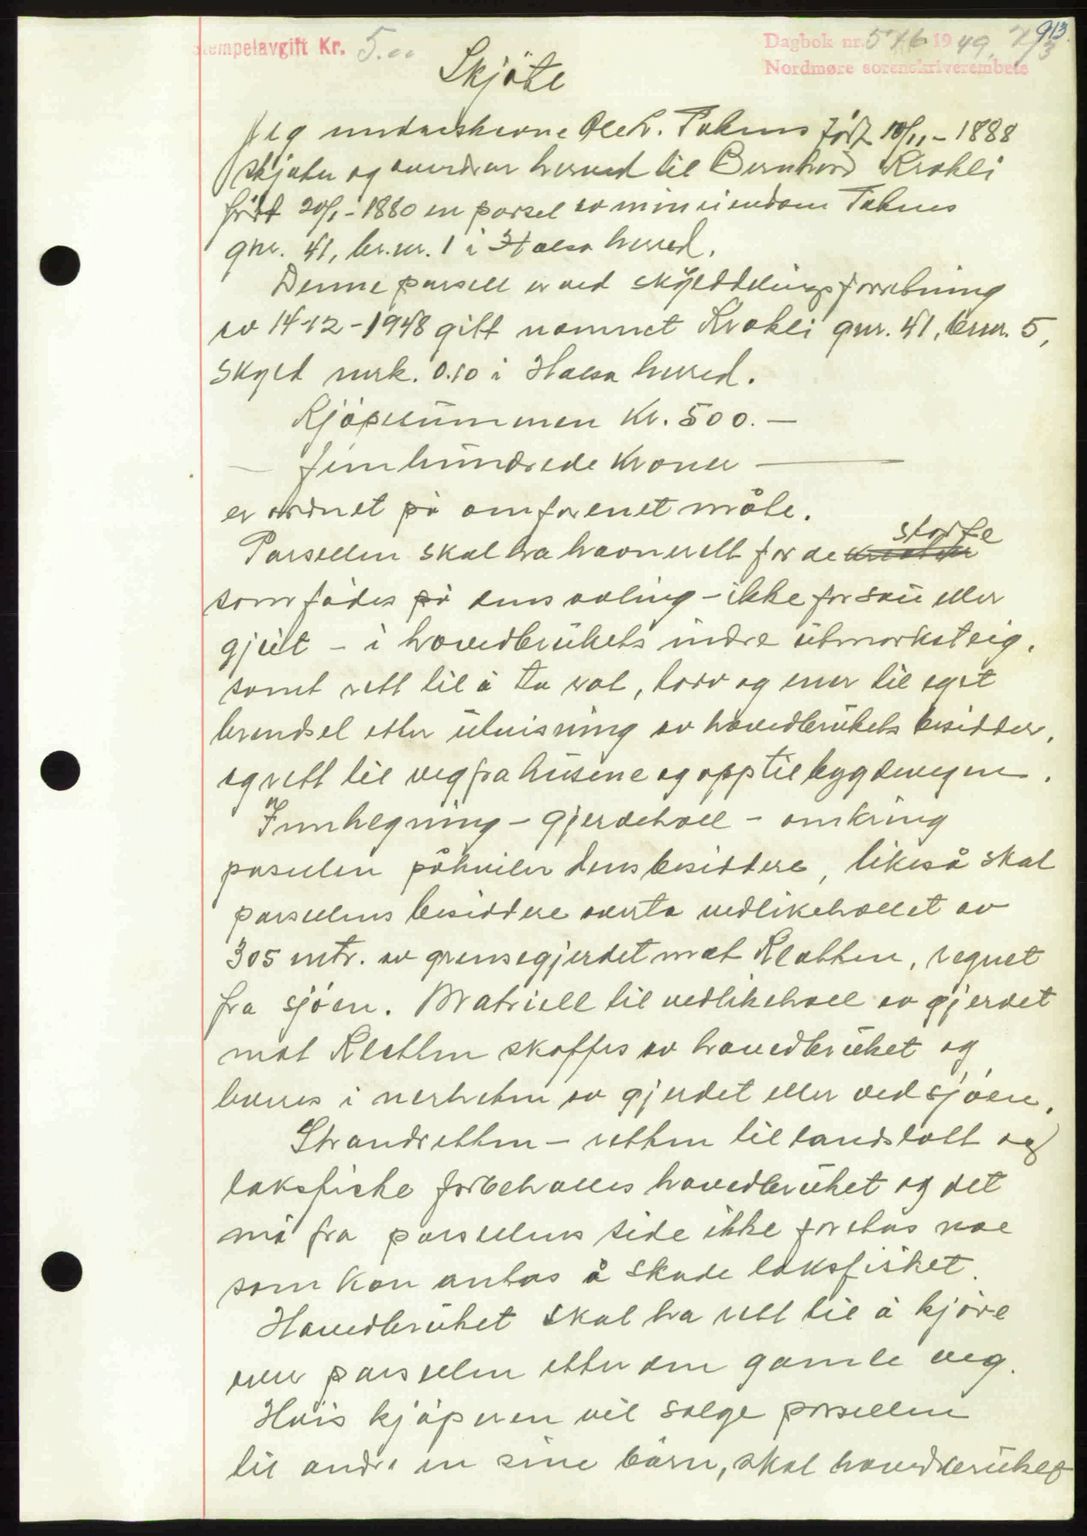 913.
Stempelavgift Kr. 5.00
Dagbok nr. 576 1949, 2/3
Nordmøre sorenskriverembete
Skjöte
Jeg underskrevne Ole L. Taknes född 10/11 - 1888
skjöter og overdrar herved til Bernhard Krokli
född 20/1 - 1880 en parsel av min eiendom Taknes
gnr. 41, br.nr. 1 i Halsa herred.
Denne parsell er ved skylddelingsforretning
av 14-12-1948 gitt namnet Krokli gnr. 41, brnr. 5,
skyld mrk. 0.10 i Halsa herred.
Kjöpesummen kr. 500.—
— femhundrede kroner —
er ordnet på omforenet måte.
storfe
Parsellen skal ha havnerett for de
som födes på dens avling - ikke for sau eller
gjeit - i hovedbrukets indre utmarksteig,
samt rett til å ta ved, torv og ener til eget
brendsel etter utvisning av hovedbrukets besidder,
og rett til veg fra husene og opp til bygdevegen.
Innhegning - gjerdehold - omkring
parsellen påhviler dens besiddere, likeså skal
parsellens besiddere overta vedlikeholdet av
305 mtr. av grensegjerdet mot Kletten, regnet
fra sjöen. Matriell til vedlikehold av gjerdet
mot Kletten skaffes av hovedbruket og
leveres i nerheten av gjerdet eller ved sjöen.
Strandretten - retten til landslott og
laksfiske forbeholdes hovedbruket og det
må fra parsellens side ikke foretas noe
som kan antas å skade laksfisket.
Hovedbruket skal ha rett til å kjöre
over parsellen etter den gamle veg.
Hvis kjöperen vil selge parsellen
til andre en sine barn, skal hovedbruket